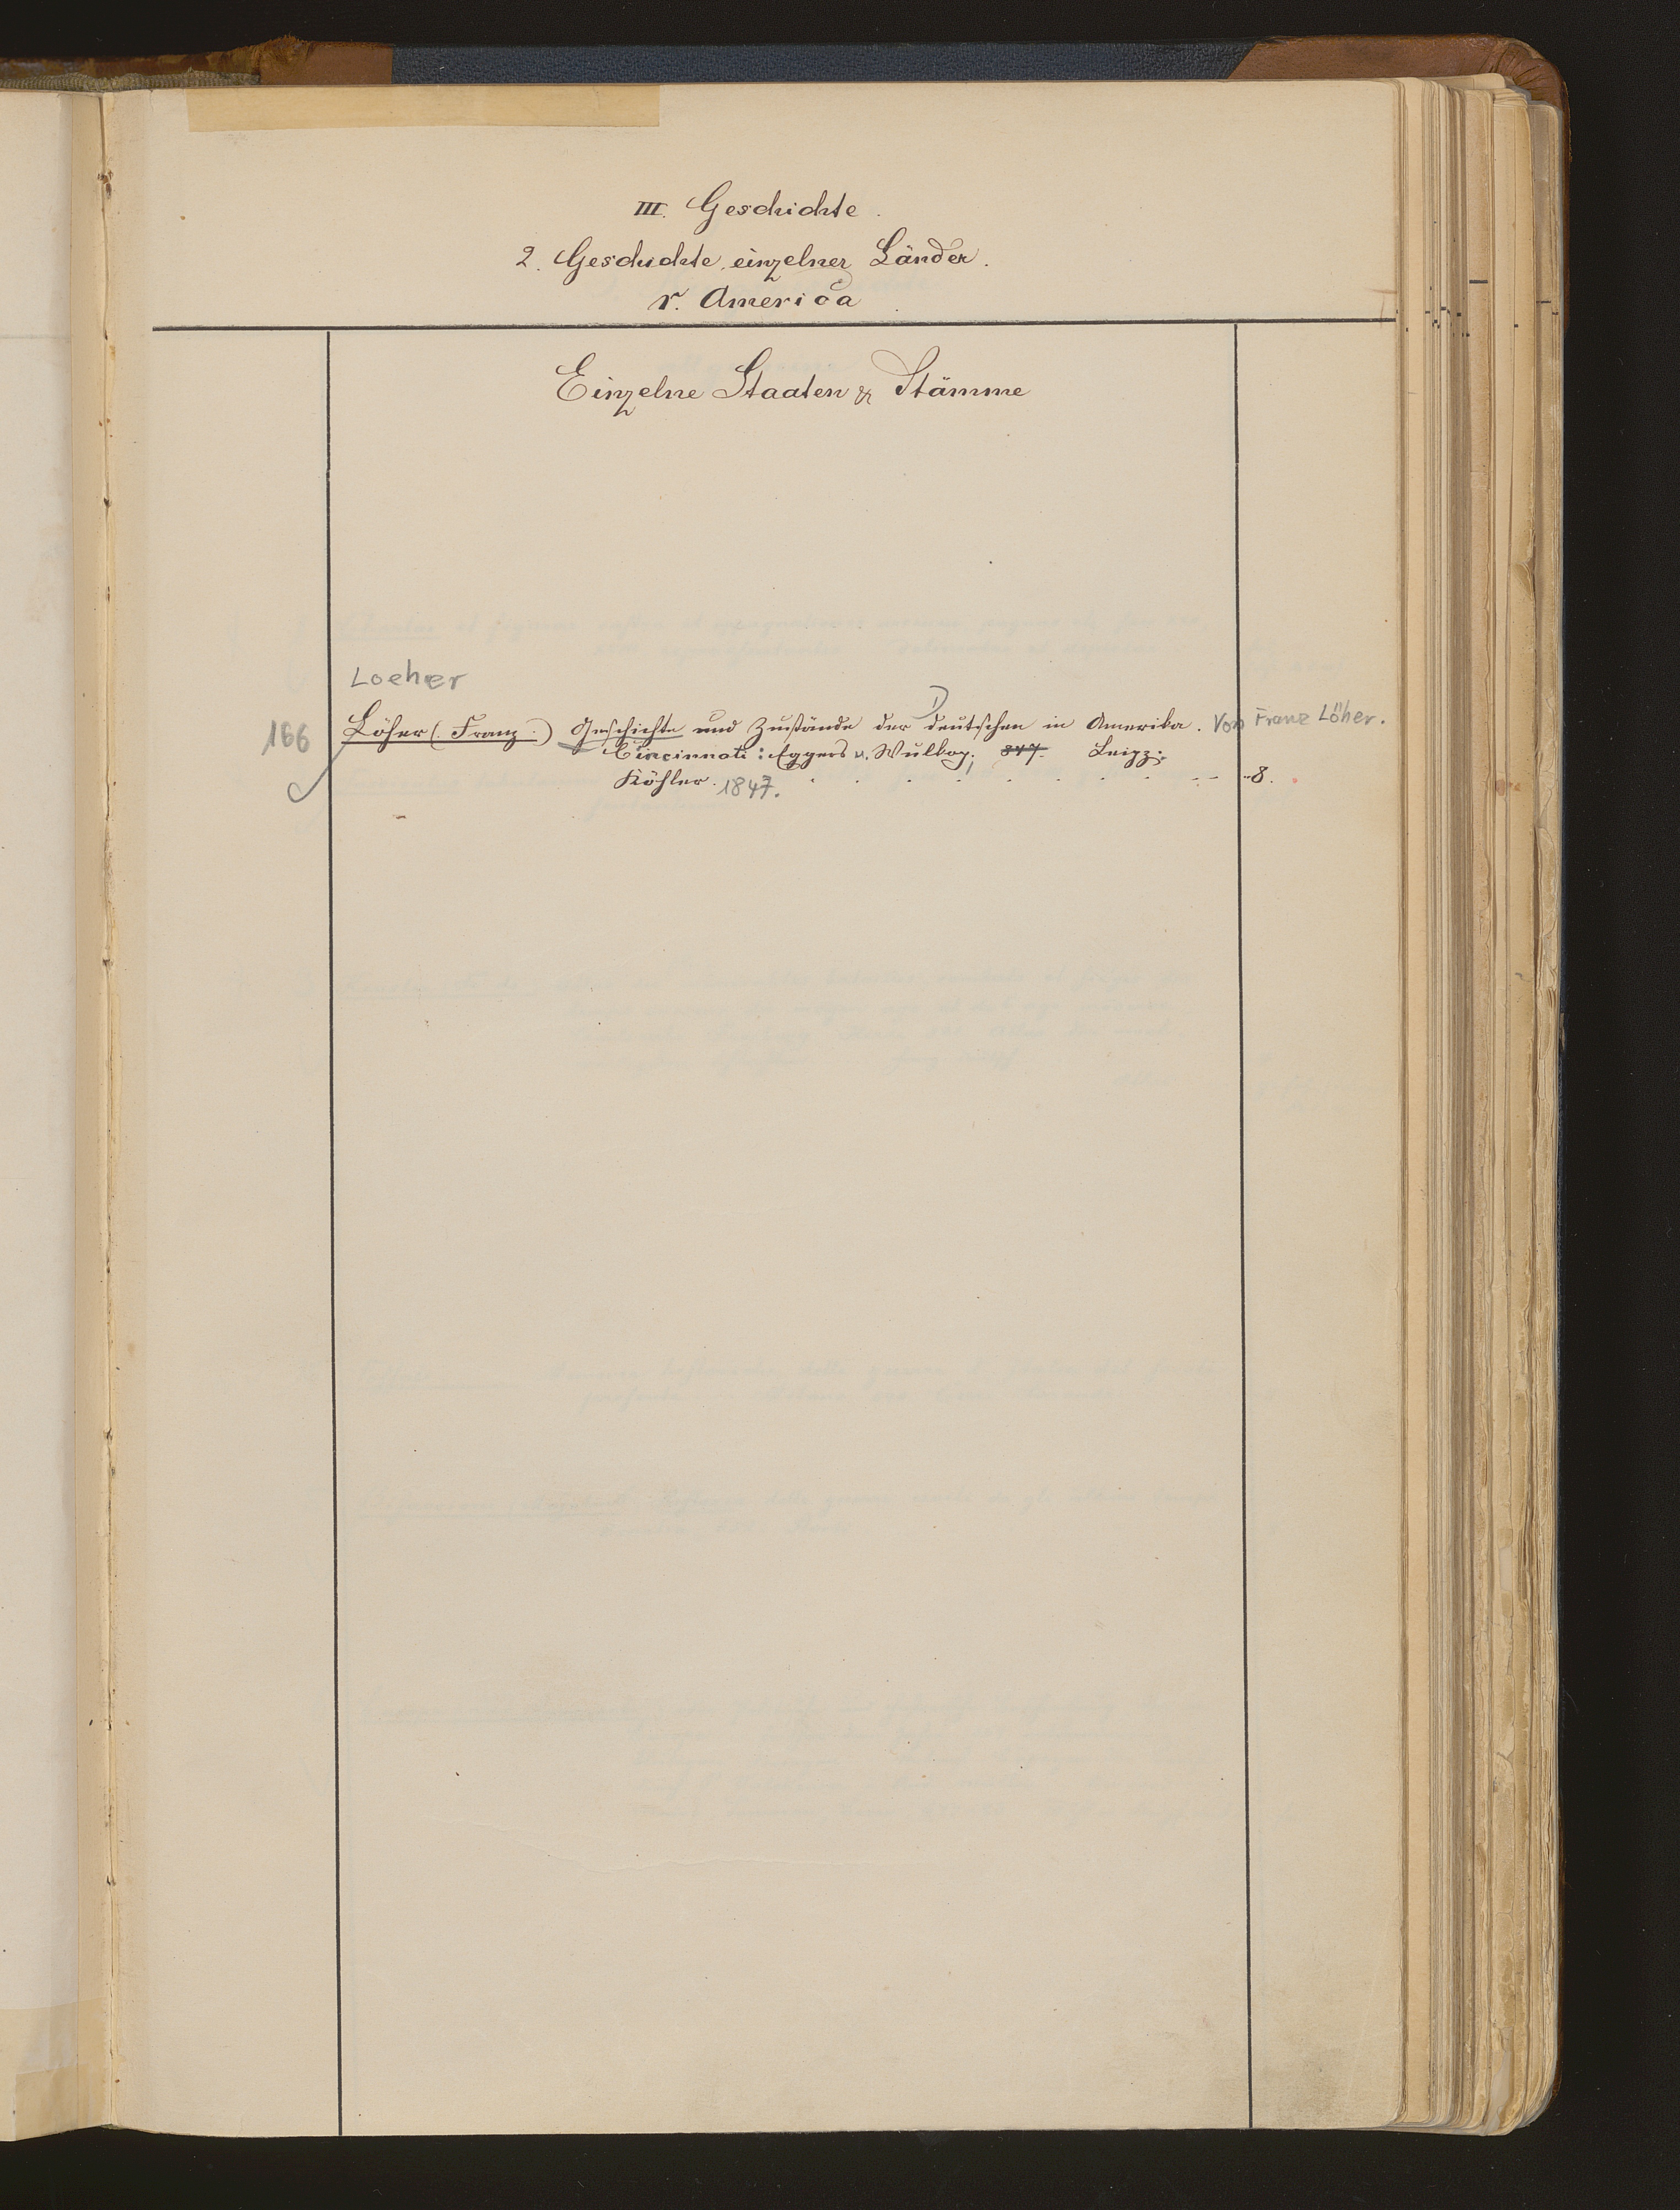 III. Geschichte.
2. Geschichte einzelner Länder.
r. America
Einzelne Staaten & Stämme
Loeher
166 Löher (Franz.) Geschichte und Zustände der deutschen in Amerika. Von Franz Löher.
D
Cincinnati: Eggers u. Wulkop; 847. Leipz.:
Köhler. 1847. . . . . . . . . . 8.